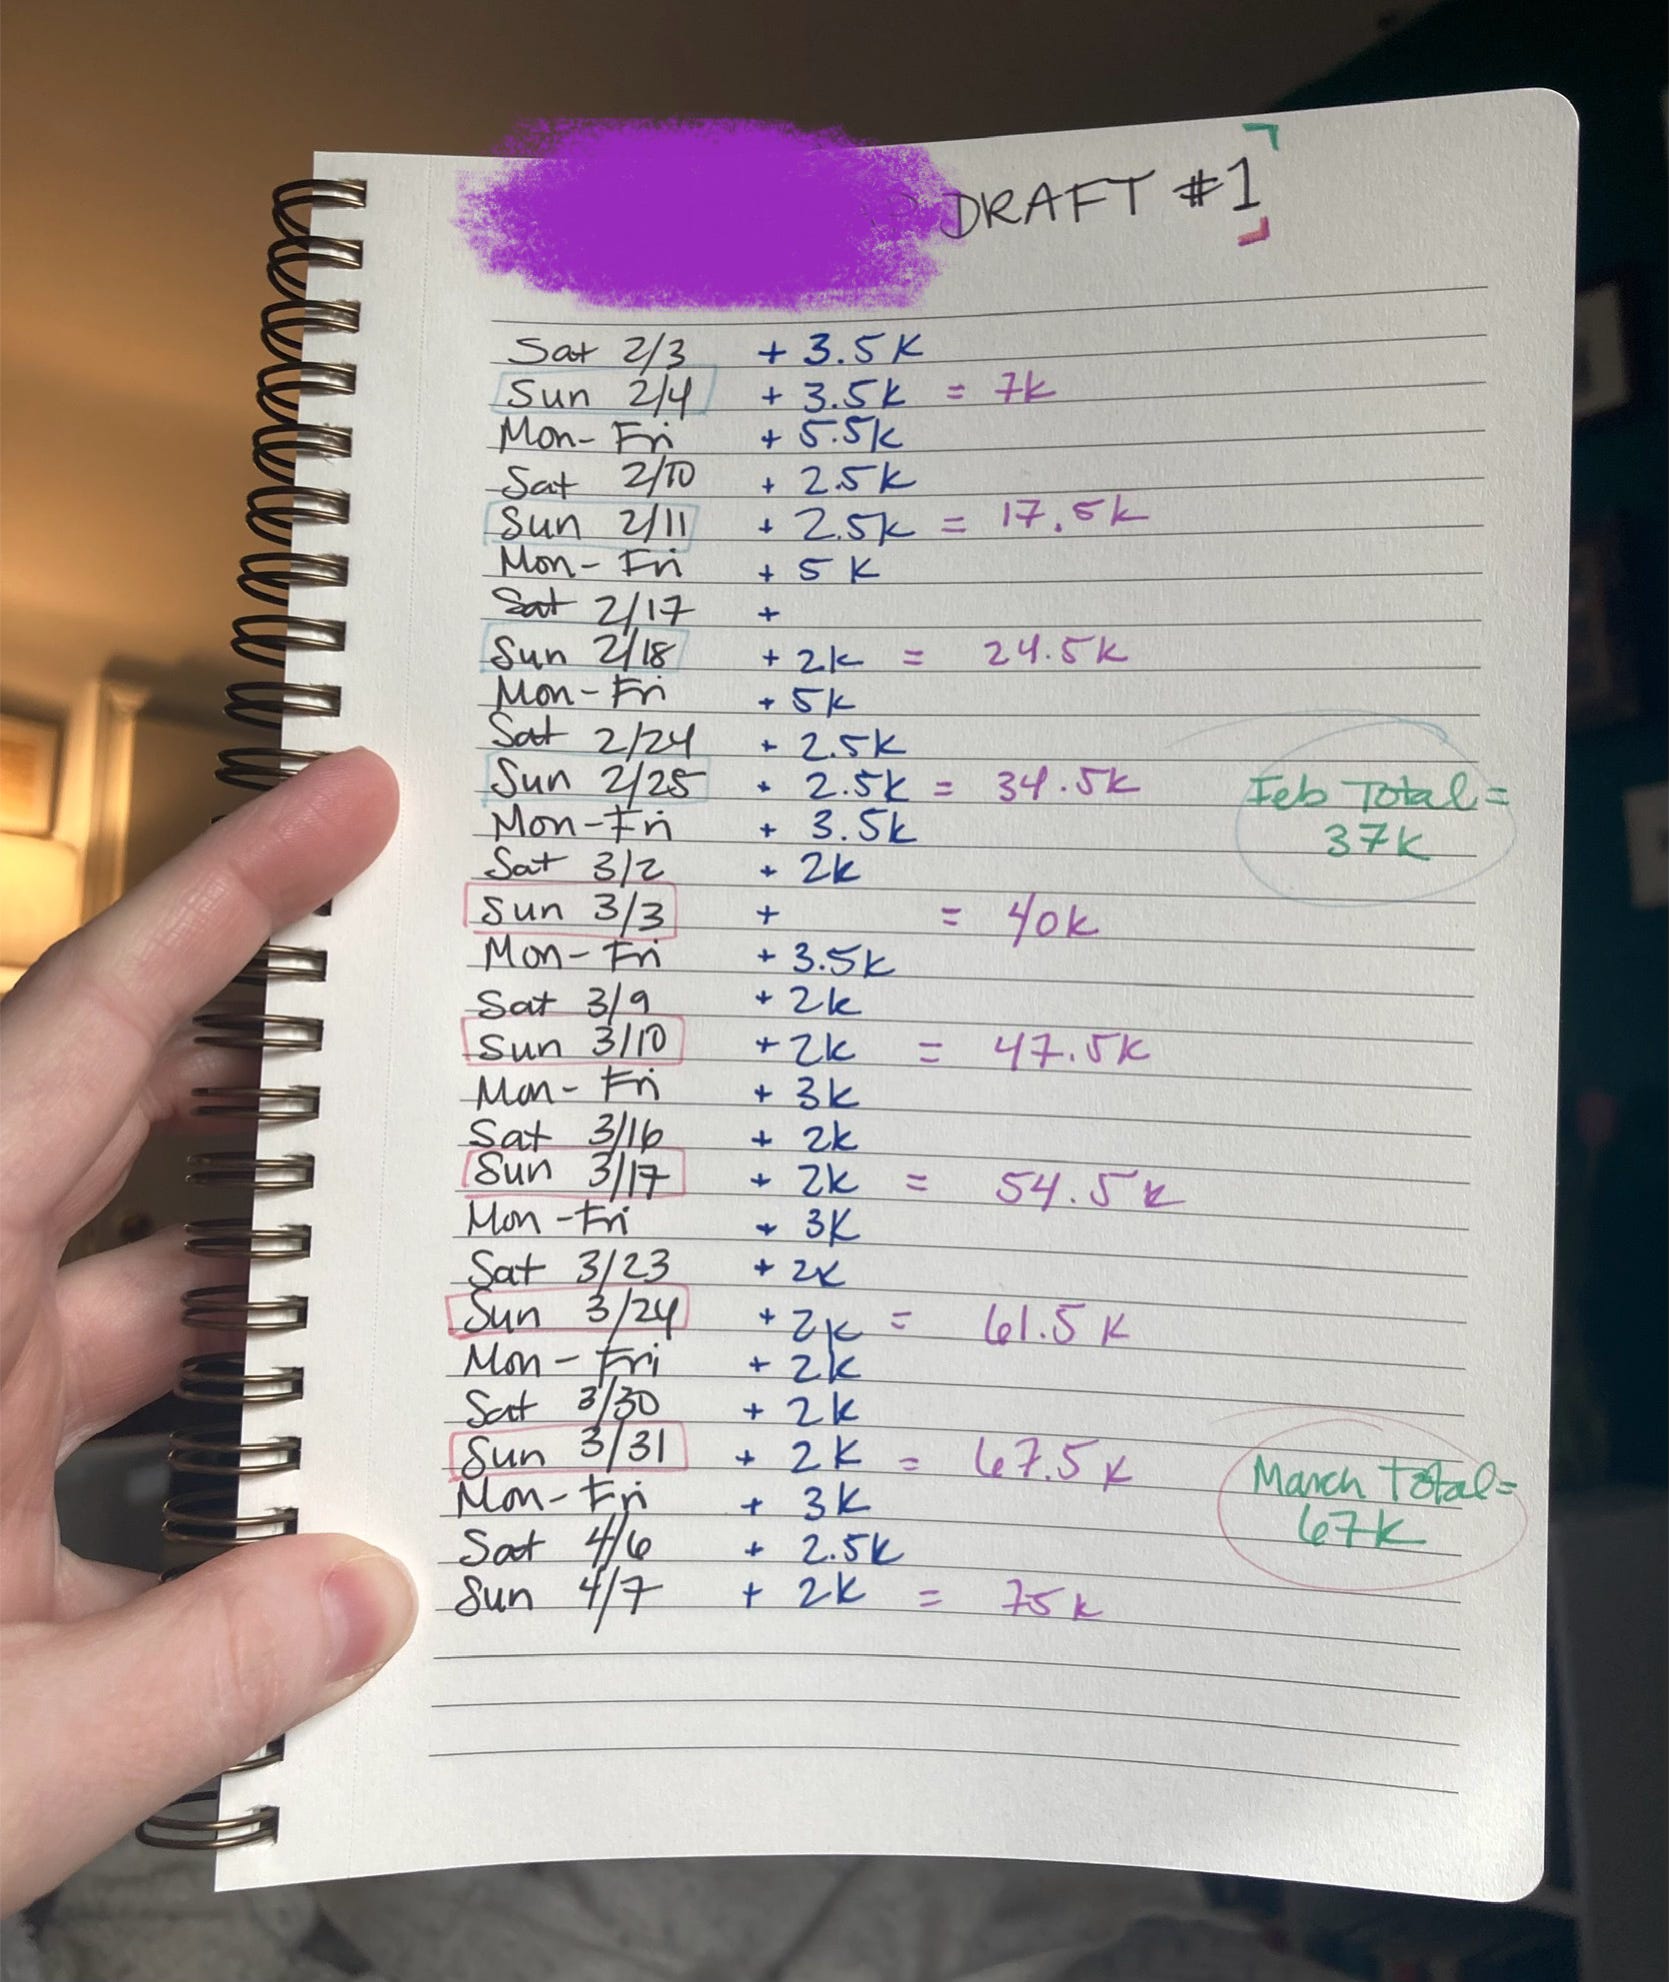 DRAFT #1
Sat 2/3 + 3.5K
Sun 2/4 + 3.5K = 7k
Mon-Fri + 5.5k
Sat 2/10 + 2.5k
Sun 2/11 + 2.5k = 17.5k
Mon-Fri + 5K
Sat 2/17 +
Sun 2/18 + 2k = 24.5k
Mon-Fri + 5k
Sat 2/24 + 2.5K
Sun 2/25 + 2.5k = 34.5k
Feb Total =
37k
Mon-Fri + 3.5k
Sat 3/2 + 2k
Sun 3/3 + = 40k
Mon-Fri + 3.5k
Sat 3/9 + 2k
Sun 3/10 + 2k = 47.5k
Mon-Fri + 3k
Sat 3/16 + 2k
Sun 3/17 + 2k = 54.5k
Mon-Fri + 3K
Sat 3/23 + 2K
Sun 3/24 + 2k = 61.5K
Mon-Fri + 2k
Sat 3/30 + 2k
Sun 3/31 + 2K = 67.5k
March Total =
67k
Mon-Fri + 3K
Sat 4/6 + 2.5k
Sun 4/7 + 2k = 75k